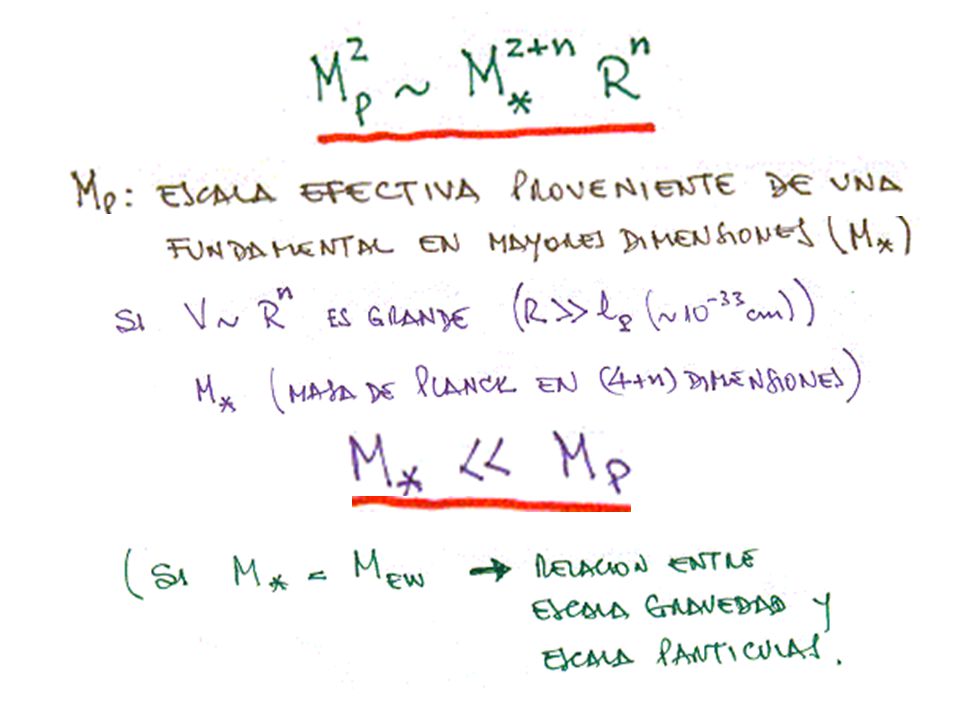 M_P^2 ~ M_*^{2+n} R^n
M_P: ESCALA EFECTIVA PROVENIENTE DE UNA
FUNDAMENTAL EN MAYORES DIMENSIONES (M_*)
SI V ~ R^n ES GRANDE (R >> l_P (~10^{-33} cm))
M_* (MASA DE PLANCK EN (4+n) DIMENSIONES)
M_* << M_P
(SI M_* = M_EW → RELACION ENTRE
ESCALA GRAVEDAD Y
ESCALA PARTICULAS.